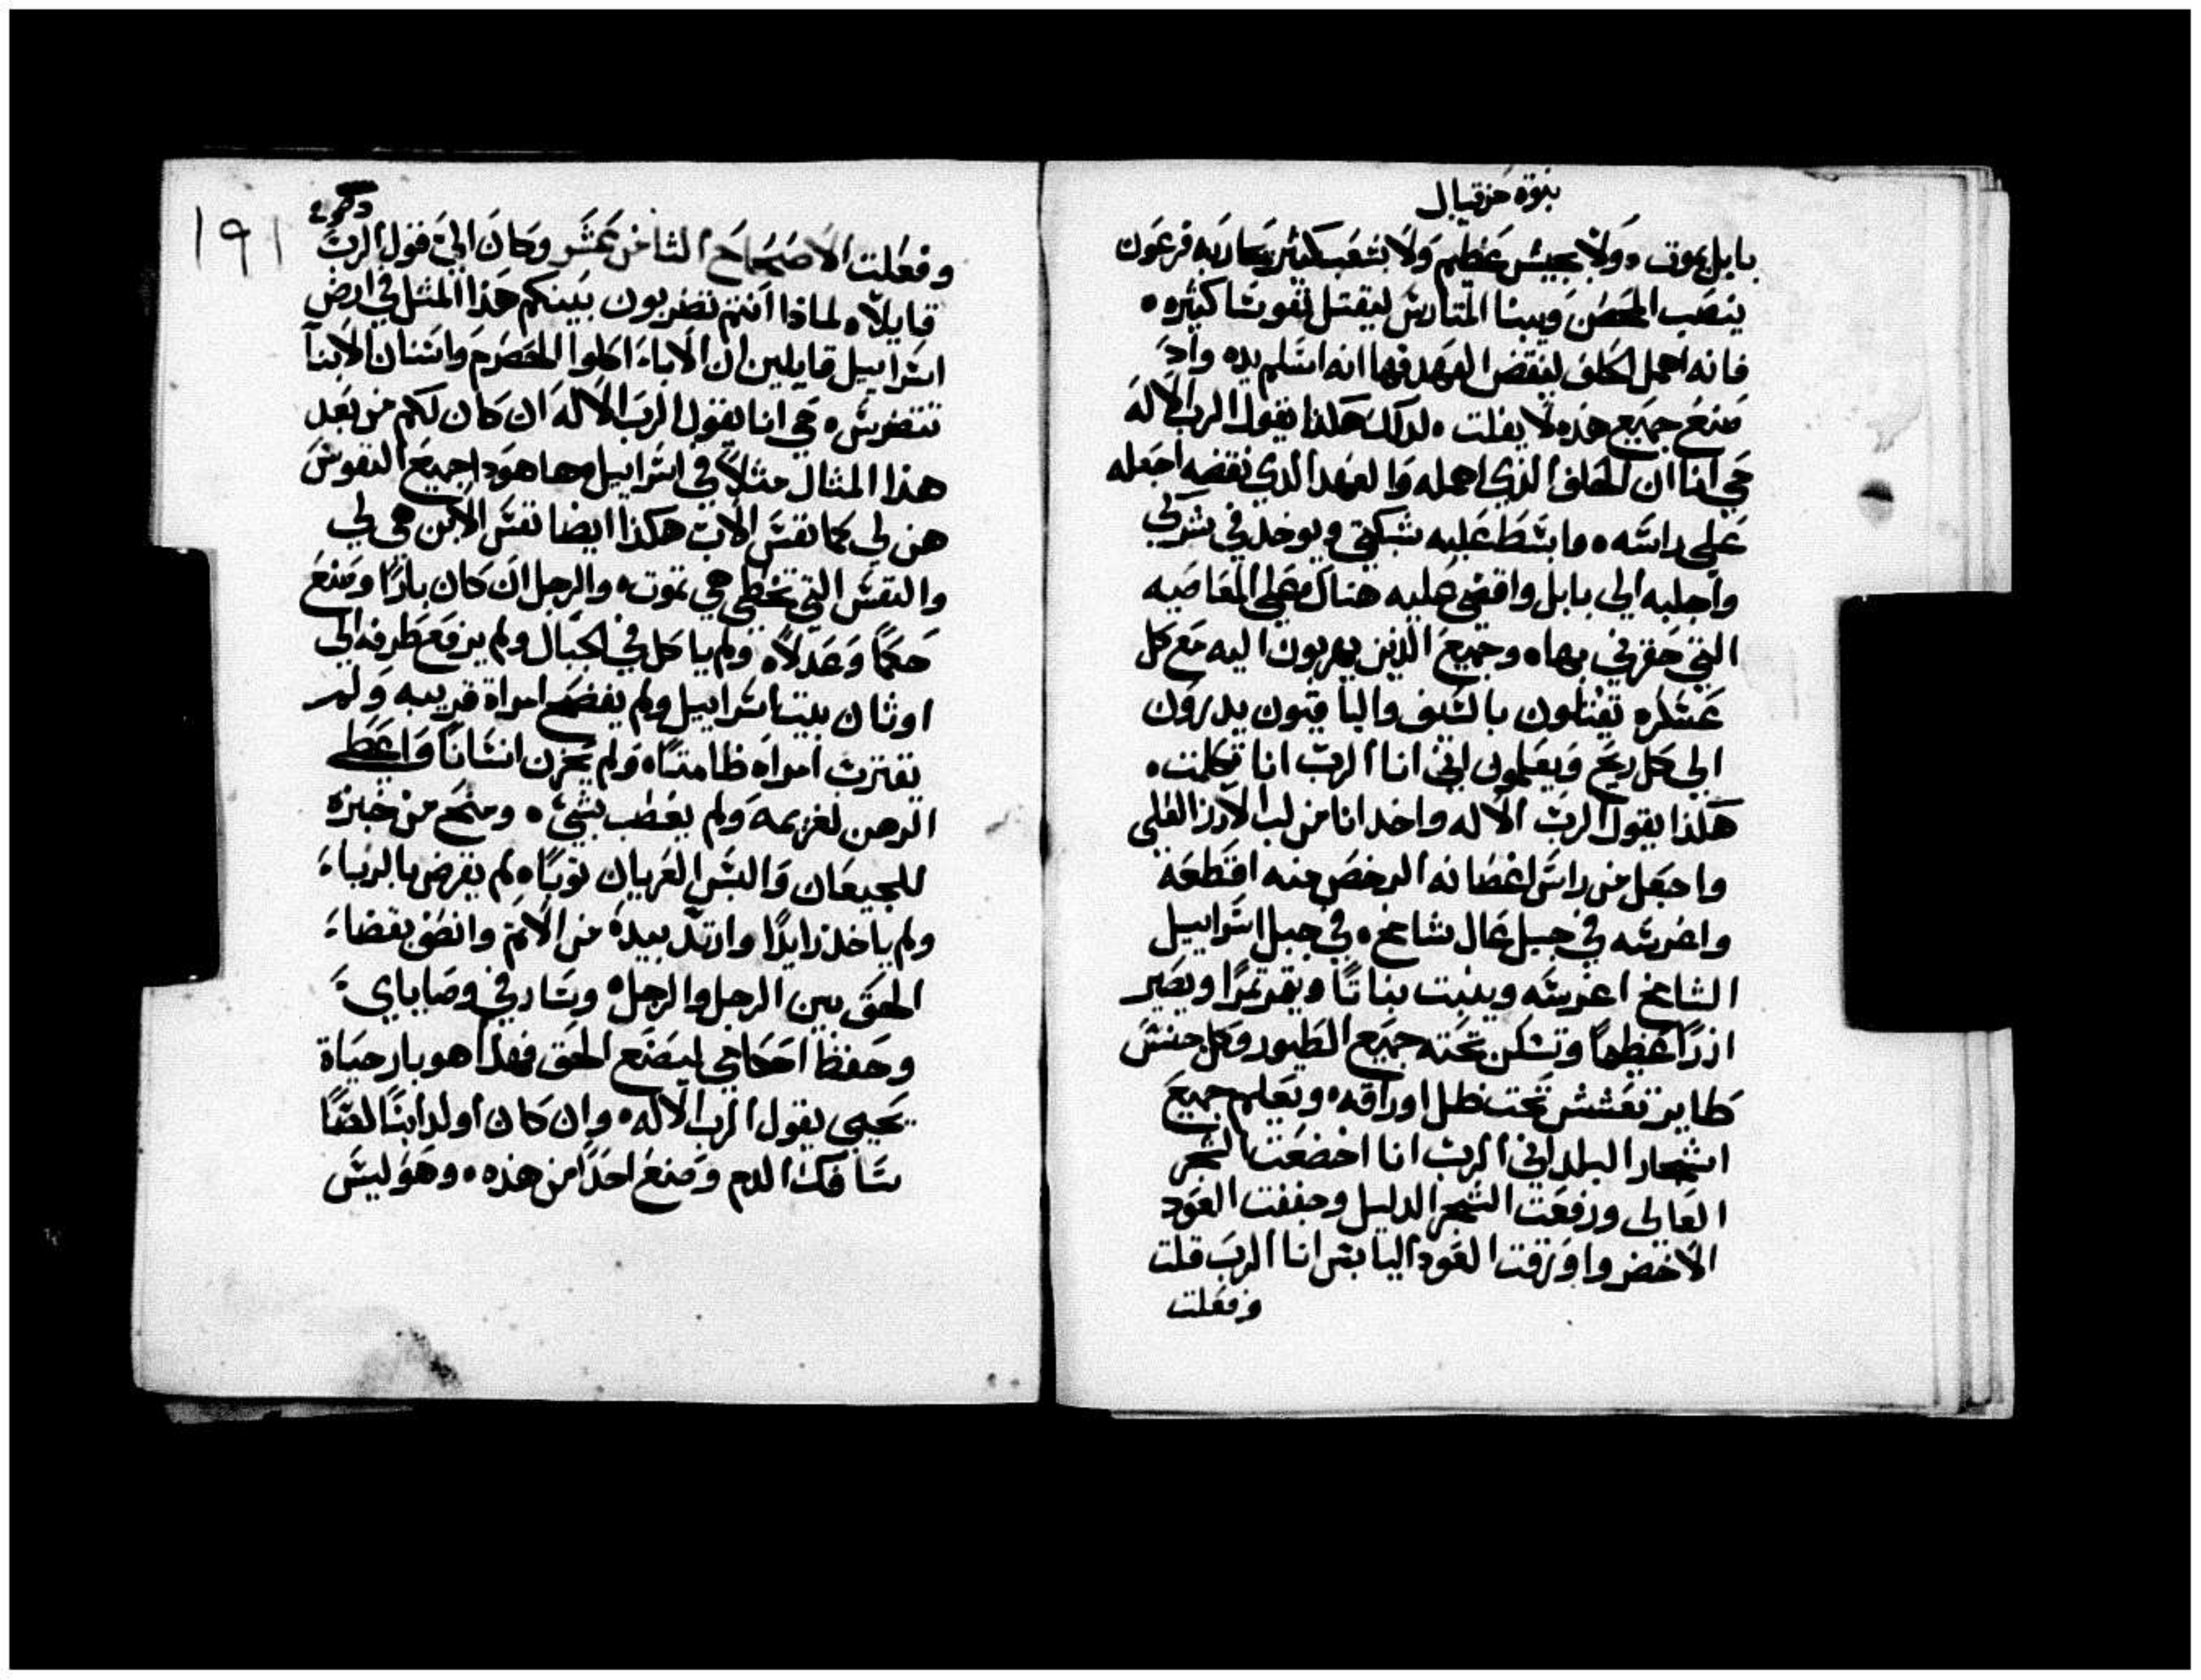 نبوة حزقيال
بابل يموت ٠ ولا بجيش عظيم ولا بشعب كثير يحاربه فرعون
ينصب الحصن ويبنا المتاريس ليقتل نفوسا كثيره ٠
فانه اهمل الحلف لينقض العهد فها انه اسلم يده واد
صنع جميع هذه لا يفلت ٠ لدلك هكذا يقول الرب الاله
حي انا ان الحلف الذي اهمله والعهد الدي نقضه اجعله
على راسه ٠ وابسط عليه شبكتي ويوخد في شركي
واجلبه الي بابل واقضي عليه هناك على المعاصيه
التي حقرني بها ٠ وجميع الذين يهربون اليه مع كل
عسكره يقتلون بالسيف والباقون يدرون
الي كل ريح ويعلمون اني انا الرب انا تكلمت ٠
هكذا يقول الرب الاله واخد انا من لب الارز العلي
واجعل من راس اغصانه الرخص منه اقتطعه
واغرسه في جبل عال شامخ ٠ في جبل اسراييل
الشامخ اغرسه وينبت نباتا ويثمر ثمرا ويصير
ارزا عظيما وتسكن تحته جميع الطيور وكل جنس
طاير تعشش تحت ظل اوراقه ٠ وتعلم جميع
اشجار البلد اني الرب انا اخضعت الشجر
العالي ورفعت الشجر الدليل وجففت العود
الاخضر واورقت العود اليابس انا الرب قلت
وفعلت
١٩١
وفعلت الاصحاح الثامن عشر وكان الي قول الرب
قايلا ٠ لماذا انتم تضربون بينكم هذا المثل في ارض
اسراييل قايلين ان الاباء اكلوا الحصرم واسنان الابنا
تتضرس ٠ حي انا يقول الرب الاله ان كان لكم من بعد
هذا المثال مثلا في اسراييل ٠ ها هودا جميع النفوس
هن لي كما نفس الاب هكذا ايضا نفس الابن هي لي
والنفس التي تخطي هي تموت ٠ والرجل ان كان بارا وصنع
حكما وعدلا ٠ ولم ياكل في الجبال ولم يرفع طرفه الي
اوثان بيت اسراييل ولم يفضح امراة قريبه ولم
يقترب امراه طامثا ٠ ولم يحزن انسانا واعطى
الرهن لغريمه ولم يغطب بشي ٠ ومنح من خبزه
للجيعان والبس العريان ثوبا ٠ لم يقرض بالرباء
ولم ياخد زايدا وارتد بيده من الاتم وانصف بقضاء
الحق بين الرجل والرجل ٠ وسار في وصاياي
وحفظ احكامي ليصنع الحق فهذا هو بار حياة
يحيي يقول الرب الاله ٠ وان كان اولد ابنا لصا
سافك الدم وصنع احدا من هذه ٠ وهو ليس